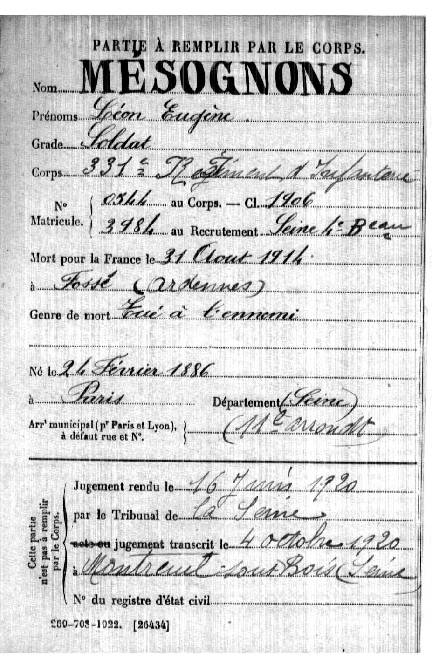 PARTIE À REMPLIR PAR LE CORPS.
MÉSOGNONS
Nom
Prénoms Léon Eugène.
Grade Soldat
Corps 331e Régiment d'Infanterie
N° 0544 au Corps. — Cl. 1906
Matricule. 3984 au Recrutement Seine 4e Beau
Mort pour la France le 31 Aout 1914.
à Fossé (Ardennes)
Genre de mort Tué à l'ennemi
Né le 24 Février 1886
à Paris Département (Seine)
Arrt municipal (pr Paris et Lyon), à défaut rue et N°. (11e arrondt)
Cette partie n'est pas à remplir par le Corps.
Jugement rendu le 16 Juin 1920
par le Tribunal de la Seine
acte ou jugement transcrit le 4 octobre 1920
à Montreuil-sous-Bois (Seine)
N° du registre d'état civil
260-708-1922. [26434]